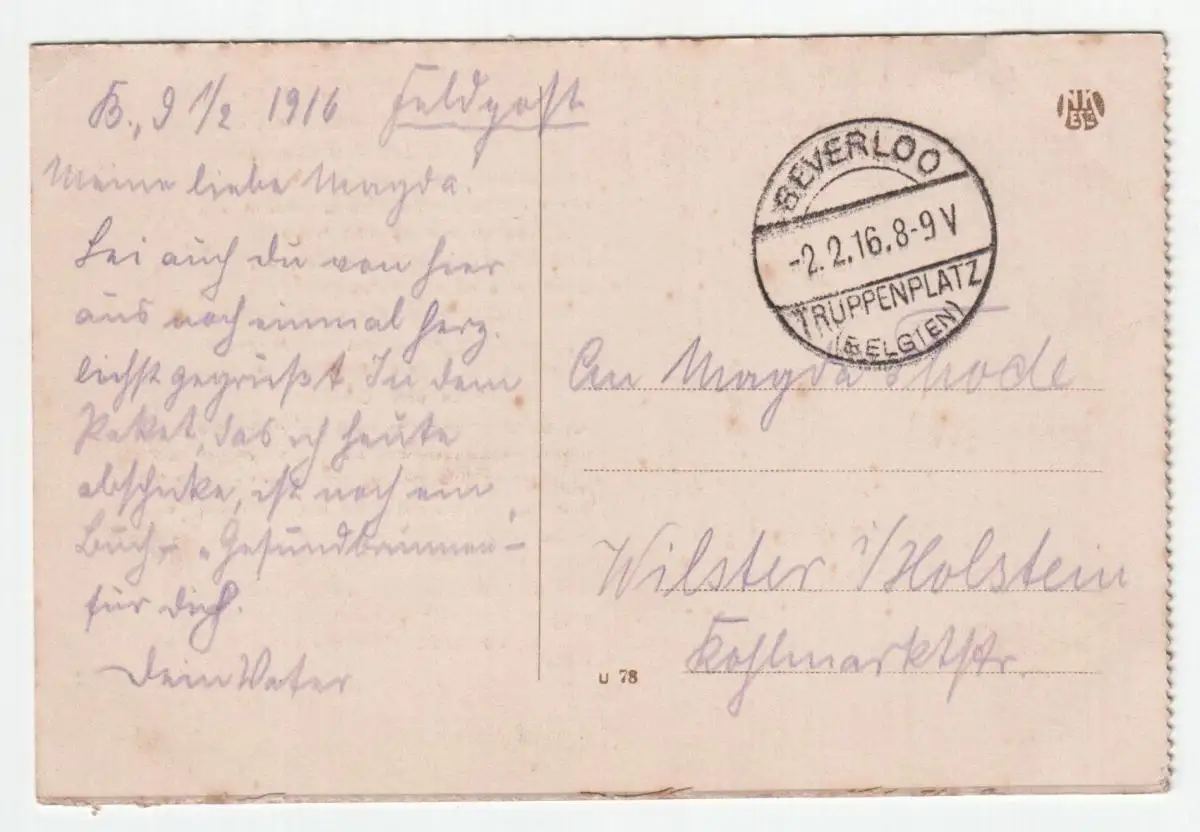 B., 9 1/2 1916 Feldpost
Meine liebe Magda.
Sei auch du von hier
aus noch einmal herz.
lichst gegrüßt. In dem
Paket, das ich heute
abschicke, ist noch ein
Buch - „Gesundbrunnen -
für dich.
Dein Vater
BEVERLOO
-2.2.16.8-9 V
TRUPPENPLATZ
(BELGIEN)
An Magda
Wilster i/Holstein
Kohlmarktstr.
U 78